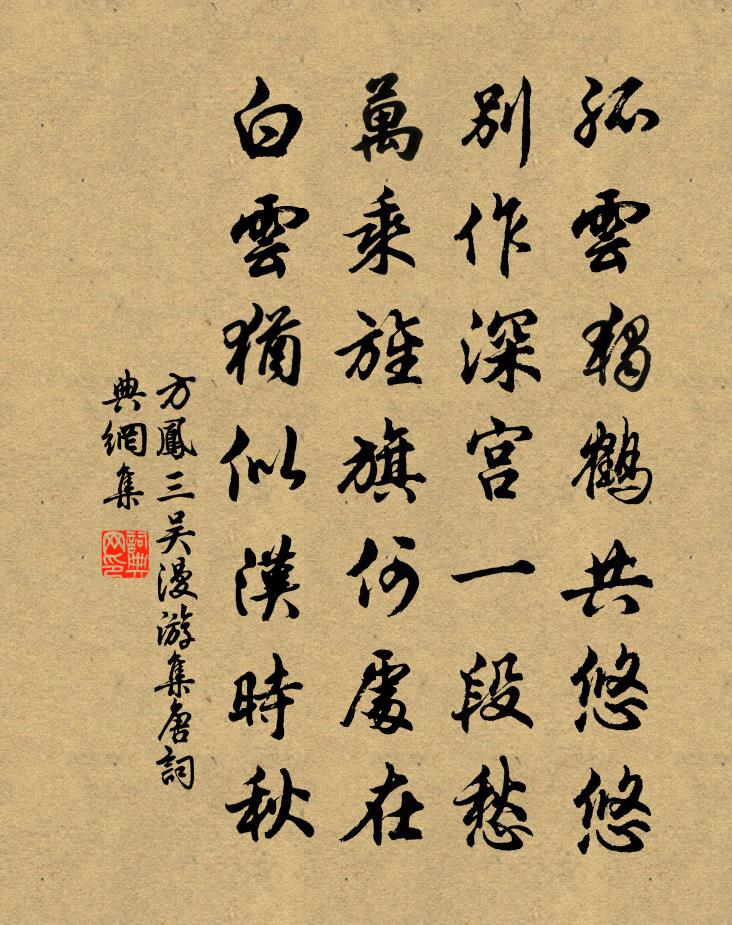 孤雲獨鶴共悠悠
別作深宮一段愁
萬乘旌旗何處在
白雲猶似漢時秋
方鳳三吴漫游集唐詞
典網集
詞典網印